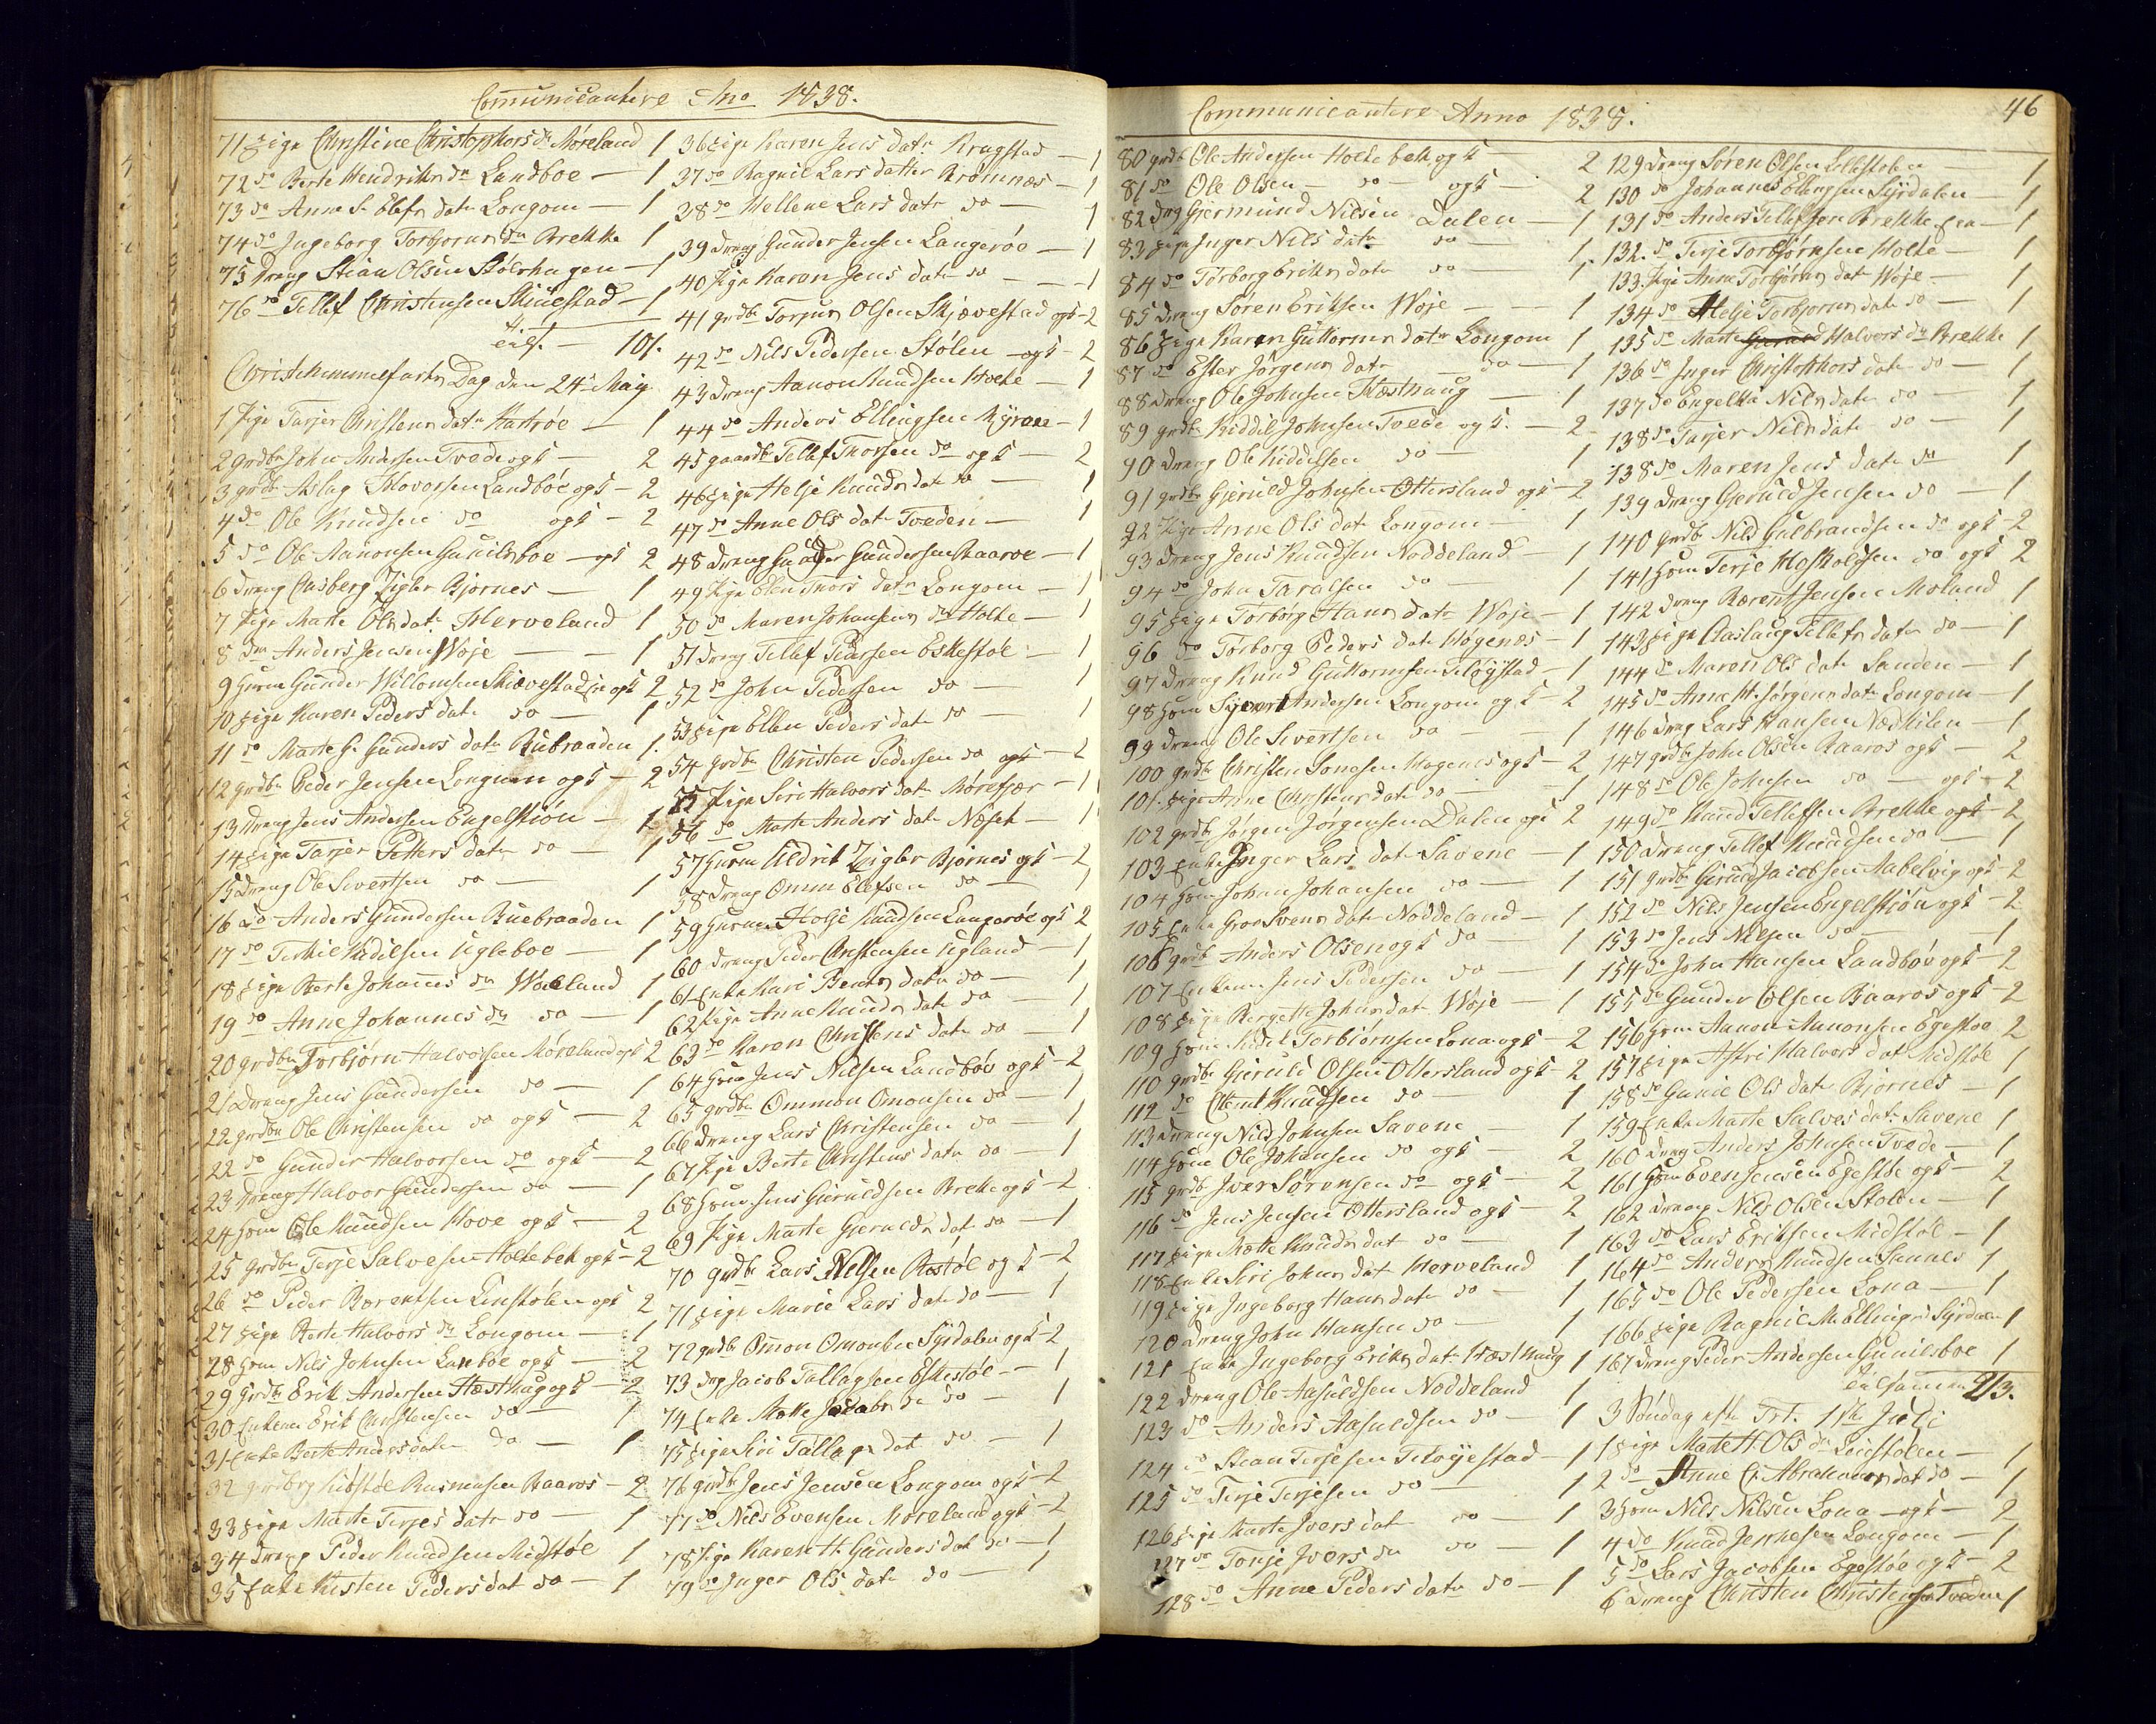 Communicantere Ano 1838.
71 Pige Christine Christophors dr Møreland 1
72 do Berte Hendrichs dr Landboe — 1
73 do Anne S. Olefs datr Longom — 1
74 do Ingeborg Torbjorns dr Brekke 1
75 Dreng Stian Olsen Stølerhagen — 1
76 do Tellef Christensen Skiulestad — 1
101.
Christi himmelfarts Dag den 24de Maÿ
1 Pige Tarjer Christens datr Hartrøe — 1
2 grdbr John Andersen Tvede ogk — 2
3 grdbr Aslag Halvorsen Landbøe ogk — 2
4 do Ole Knudsen do ogk — 2
5 do Ole Aanonsen Gunilsboe — ogk 2
6 Dreng Casberg Zigler Bjornes — 1
7 Pige Marte Ols datr Herveland 1
8 Anders Jensen Woje — 1
9 Gunder Willomsen Skiævestad ogk 2
10 Pige Karen Peders datr do — 1
11 do Marte G. Gunders datr Buebraaden 1
12 grdbr Peder Jensen Longum ogk — 2
13 Dreng Jens Andersen Engelskiön — 1
14 Pige Tarjer Petters datr do — 1
15 Dreng Ole Sivertsen do — 1
16 do Anders Gundersen Buebraaden 1
17 do Terkel Kidelsen Ugleboe — 1
18 Pige Berte Johannes dr Woeland 1
19 do Anne Johannes dr do — 1
20 grdbr Torbjørn Halvorsen Møreland ogk 2
21 Dreng Jens Gundersen do — 1
22 grdbr Ole Christensen do ogk — 2
22 do Gunder Halvorsen do ogk — 2
23 Dreng Halvor Gundersen do — 1
24 Huusm Ole Knudsen Hove ogk — 2
25 grdbr Terje Salvesen Holtebek ogk — 2
26 do Peder Børentsen Linstølen ogk 2
27 Pige Berte Halvors dr Longom — 1
28 Huusm Nils Johnsen Lanboe ogk — 2
29 grdbr Erik Andersen Hæsthag ogk — 2
30 Enkem Erik Christensen do — 1
31 Enke Berte Anders datr do — 1
32 Rasmusen Raaros — 2
33 Pige Marte Terjes datr do — 1
34 Dreng Peder Knudsen Midtstøl 1
35 Enke Kisten Peders dat do — 1
36 Pige Karen Jens datr Kragstad — 1
37 do Ragnil Lars datter Kromnæs — 1
38 do Hellene Lars datr do — 1
39 Dreng Gunder Jensen Langerøe — 1
40 Pige Karen Jens datr do — 1
41 grdbr Torjus Olsen Skjævestad ogk — 2
42 do Nils Pedersen Stølen — ogk — 2
43 Dreng Aanon Knudsen Holte — 1
44 do Anders Ellingsen Myrene — 1
45 gaardbr Tellef Thorsen do ogk — 2
46 Pige Helje Knuds dat do — 1
47 do Anne Ols datr Tveden — 1
48 Dreng Gunder Gundersen Raaroe — 1
49 Pige Elen Thors datr Longom — 1
50 do Maren Johansens dr Holte — 1
51 Dreng Tellef Pedersen Eskestøl — 1
52 do John Pedersen do — 1
53 Pige Ellen Peders datr do — 1
54 grdbr Christen Pedersen do ogk — 2
55 Pige Siri Halvors datr Mørefjær — 1
56 do Marte Anders datr Næset — 1
57 Huusm Uldrik Zeigler Bjornes ogk — 2
58 Dreng Omm Elefsen do — 1
59 Huusm Helje Knudsen Langerøe ogk 2
60 Dreng Peder Christensen Ugland — 1
61 Enke Kari Bents datr do — 1
62 Pige Anne Knuds datr do — 1
63 do Karen Christens datr do — 1
64 Huusm Jens Nilsen Landbøe ogk — 2
65 grdbr Ommon Omonsen do — 1
66 Dreng Lars Christensen do — 1
67 Pige Berte Christens datr do — 1
68 Huusm Jens Gieruldsen Brekke ogk — 2
69 Pige Marte Gjerulds dat do — 1
70 grdbr Lars Nilsen Rostøl ogk — 2
71 Pige Marie Lars datr do — 1
72 grdbr Omon Omonsen Syrdalen ogk — 2
73 Dng Jacob Tallagsen Eskestøl — 1
74 Enke Marte Jacobs dr do — 1
75 Pige Siri Tallags dat do — 1
76 grdbr Jens Jensen Longom ogk — 2
77 do Nils Evensen Møreland ogk — 2
78 Pige Karen H. Gunders dat do — 1
79 do Inger Ols datr do — 1
Communicantere Anno 1838.
46
80 grdb Ole Andersen Holtebek ogk 2
81 do Ole Olsen — do — ogk — 2
82 Dng Gjermund Nilsen Dalen — 1
83 Pige Inger Nils datr do — 1
84 do Torborg Eriks datr do — 1
85 Dreng Søren Eriksen Woje — 1
86 Pige Karen Guttorms datr Longom 1
87 do Ester Jørgens datr do — 1
88 Dreng Ole Johnsen Hæsthaug — 1
89 grdbr Kiddil Johnsen Tvede ogk. — 2
90 Dreng Ole Kiddilsen do — 1
91 grdbr Gjeruld Johnsen Ottersland ogk — 2
92 Pige Anne Ols dat Longom — 1
93 Dreng Jens Knudsen Noddeland — 1
94 do John Taralsen do — 1
95 Pige Torborg Hans datr Woje — 1
96 do Torborg Peders datr Wogenæs — 1
97 Dreng Knud Guttormsen Teløystad — 1
98 Huusm Sivert Andersen Longom ogk — 2
99 Dreng Ole Sivertsen do — 1
100 grdbr Christen Sonesen Wogenes ogk — 2
101. Pige Anne Christens datr do — 1
102 grdbr Jørgen Jørgensen Dalen ogk 2
103 Enke Inger Lars datr Savene — 1
104 Huusm Johan Johansen do — 1
105 Enke Groe Svens datr Noddeland — 1
106 grdbr Anders Olsen ogk do — 1
107 Enkem Jens Pedersen do — 1
108 Pige Bergette Johns dat Woje — 1
109 Huusm Kidel Torbiørnsen Lona ogk — 2
110 grdbr Gieruld Olsen Ottersland ogk — 2
112 do Clemt Knudsen do — 1
113 Dreng Nils Johnsen Savene — 1
114 Huusm Ole Johansen do ogk — 2
115 grdb Iver Sørensen do ogk — 2
116 do Jens Jensen Ottersland ogk — 2
117 Pige Mætte Knuds dat do — 1
118 Enke Siri Johns dat Herveland 1
119 Pige Ingeborg Hans datr do — 1
120 Dreng John Hansen do — 1
121 Enke Ingeborg Eriks dat Hæsthaug 1
122 Dreng Ole Aasuldsen Noddeland 1
123 do Anders Aasuldsen do — 1
124 do Stean Terjesen Teløyestad — 1
125 do Terje Terjesen do — 1
126 Pige Marte Ivers dat do — 1
127 do Tonje Ivers dr do — 1
128 do Anne Peders datr do — 1
129 Dreng Søren Olsen 1
130 do Johannes Ellingsen Syrdalen — 1
131 do Anders Tellefsen Brekke — 1
132. do Terje Torbjørnsen Holte — 1
133. Pige Anne Torbjørns dat Woje 1
134 do Helje Torbjorns datr do — 1
135 do Marte Halvors dr Brekke 1
136 do Inger Christophors datr do — 1
137 do Engelka Nils datr do — 1
138 do Tarjer Nils datr do — 1
138 do Maren Jens datr do 1
139 Dreng Gieruld Jensen do — 1
140 grdb Nils Gulbrandsen do ogk — 2
141 Huusm Terje Hoskoldsen do ogk 2
142 Dreng Bærent Jensen Moland 1
143 Pige Aaslaug Tellefs datr do — 1
144 do Maren Ols datr Sanden — 1
145 do Anne M. Jørgens datr Longom — 1
146 Dreng Lars Hansen Næskilen — 1
147 grdbr John Olsen Raaros ogk — 2
148 do Ole Johnsen do — ogk — 2
149 do Knud Tellefsen Brekke ogk — 2
150 Dreng Tellef Knudsen do — 1
151 grdbr Gieruld Jacobsen Aabelvig ogk — 2
152 do Nils Jensen Engelskiön ogk — 2
153 do Jens Nilsen do — 1
154 do John Hansen Landbøe ogk — 2
155 do Gunder Olsen Raaros ogk — 2
156 Huusm Aanon Aanonsen Egestoe 2
157 Pige Astri Halvors dat Midtstøl 1
158 do Gunil Ols datr Bjornes — 1
159 Enke Marte Salves datr Savene 1
160 Dreng Anders Johnsen Tvede — 1
161 Huusm Even Jensen Egestøe ogk — 2
162 Dreng Nils Olsen Stølen — 1
163 do Lars Eriksen Midtstøl — 1
164 do Anders Knudsen Sannes 1
165 do Ole Pedersen Lona — 1
166 Pige Ragnil M. Ellings d Syrdalen 1
167 Dreng Peder Andersen Gunilsboe 1
tilsammen 213.
3 Søndag efter Tri. 1ste Juli
1 Pige Marte H. Ols dr Leirstølen — 1
2 do Anne C. Abrahams dat do — 1
3 Huusm Nils Nilsen Lona — ogk — 2
4 do Knud Jerkesen Longom — 1
5 do Lars Jacobsen Egestøe ogk — 2
6 Dreng Christen Christensen Tveden 1